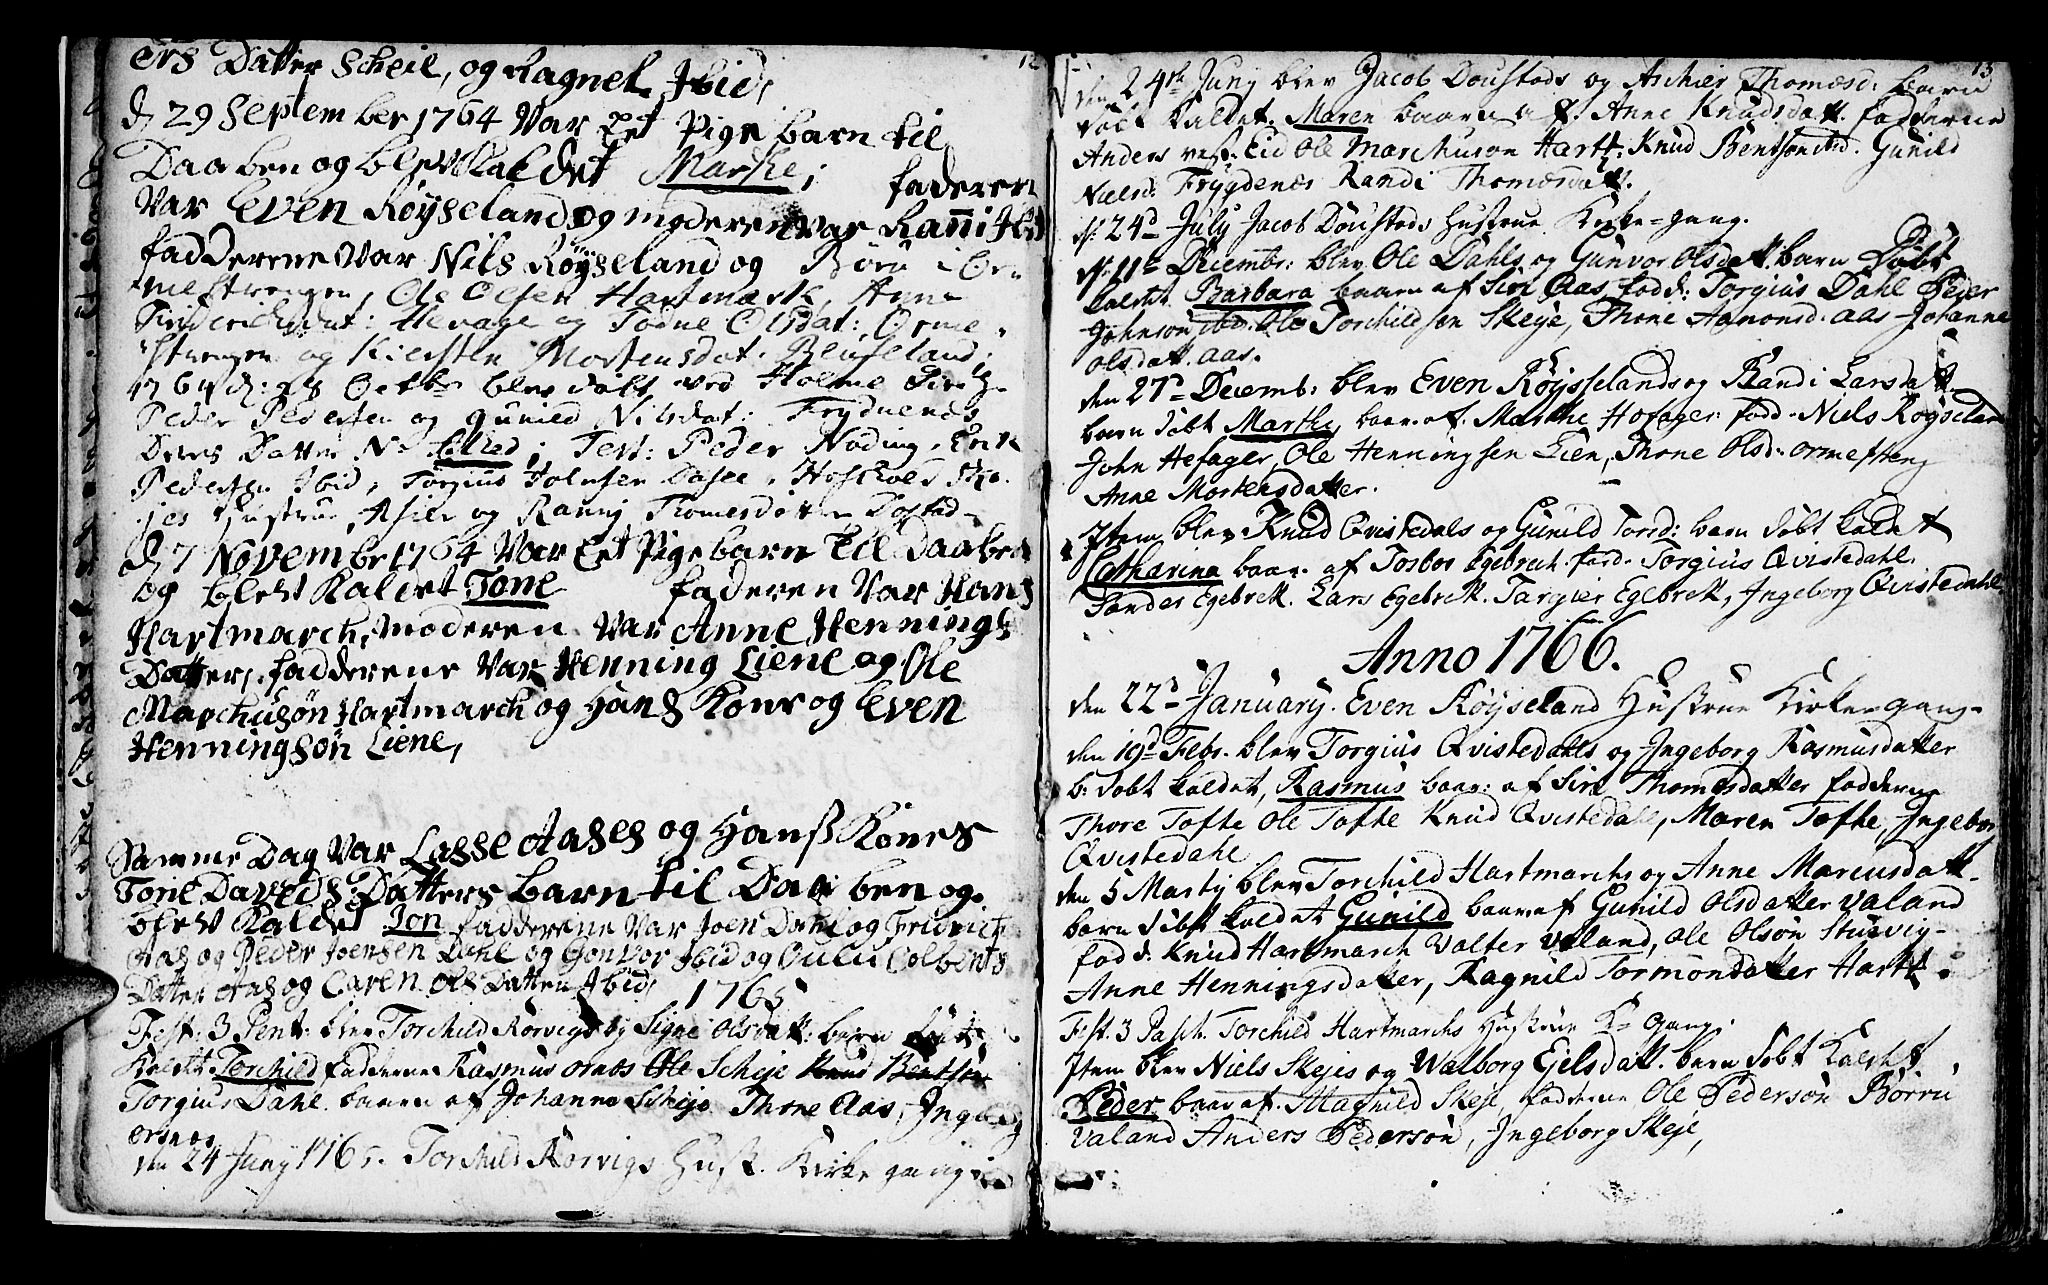 12
ers Datter Scheie, og Ragnel Ibid,
d 29 September 1764 Var Eet Pige barn til
Daaben og blev Kaldet Marthe, faderen
Var Even Röÿseland og moderen var Rañi Ibid
fadderene Var Nils Röÿseland og Böru i Or
mestrengen, Ole Olsen Hartmark, Anne
Friderichsdat: Hevage og Todne Olsdat: Orme
strengen og Kiersten Mortensdat. Reuseland;
1764 d: 28 Octbr blev døbt ved Holme Kirch
Peder Pedersen og Gunild Nilsdat: Frydnenes
Deres Datter N: Elled; Test: Peder Noding, Erik
Pedersen Ibid, Torgius Holmsen Dasee, Hoskoed Ske
jes Hustrue, Asier og Ranni Tomesdötter Dostad
d 7 November 1764 Var Eet Pige barn til Daaben
og blev Kaldet Tone faderen Var Hans
Hartmarch, moderen Var Anne Hennings
Datter, fadderene Var Henning Liene og Ole
Marchusön Hartmarch og Hans Kone og Even
Henningsön Liene,
Samme Dag Var Lasse Aases og Hanß Kones
Tone Daveds Datters barn til Daaben og
blev Kaldet Jon fadderene Var Joen Dahl og Fredrich
Aas og Peder Joensen Dahl og Gonvor Ibid og Gulu Colbents
Datter Aas og Caren Ols Datter Ibid,
1765
Fest: 3 Pent: blev Torchild Rorvigs og Signe Olsdatt: barn døbt
Kaldt Torchild fadderne Rasmus Ornes Ole Scheje Knud Bentsön
Torgius Dahl baaren af Johanne Scheje Thone Aas, Ingeborg
Ersnes
den 24 Juny 1765. Torchild Rorvigs Hust. Kirke gang
13
den 24de Juny blev Jacob Doustads og Aschier Thomasd: barn
döbt Kaldet Maren baaren af Anne Knudsdatt. fadderne
Anders vest. Eid Ole Marchuson Hartt: Knud Bentson ibid. Gunild
Nielsd: Frygdenes Randi Thomasdatt.
d. 24d July Jacob Doustads Hustrue Kirke-gang.
d. 11te Decembr: blev Ole Dahls og Gunvor Olsdatt barn Döbt
Kaldet Barbara baaren af Siri Aas, fodd: Torgius Dahl Peder
Johnson ibid. Ole Torchildsen Skeje, Thone Aamonsd. Aas Johanne
Olsdatt. Aas.
den 27d Decemb: blev Even Röÿsselands og Randi Larsdatt
barn döbt Marthe, baar. af. Marthe Hofager. fadd. Niels Röÿseland
John Hefager, Ole Henningsen Lien, Thone Olsd: Ormestreng
Anne Mortensdatter.
Item blev Knud Qvistedals og Gunild Tored: barn döbt Kaldet
Catharina baar. af Tosbor Egebrech fard. Torgius Qvistedahl
Sander Egebrek. Lars Egebrek. Targier Egebrek, Ingeborg Qvistedahl
Anno 1766.
den 22d January. Even Röÿseland Hustrue Kirke gang
den 19d Febr. blev Torgius Qvistedahls og Ingeborg Rasmusdatter
b: döbt kaldet, Rasmus baar: af Siri Thomesdatter fadderne
Thore Tofte Ole Tofte Knud Qvistedahl, Maren Tofte, Ingeborg
Qvistedahl
den 5 Martij blev Torchild Hartmarchs og Anne Marcusdatt
barn döbt kaldet Gunild baar af Gunild Olsdatter Valand
fadd: Knud Hartmarch Valter Valand, Ole Olsön Stusvig
Anne Henningsdatter, Ragnild Tormondatter Hartt
Fest 3 Pasch. Torchild Hartmarchs Hustrue K= gang.
Item blev Niels Skejes og Walborg Ejelsdatt. barn döbt Kaldet
Peder baar af. Magnild Skeje, fadderne Ole Pedersön Börru
Valand Anders Pedersön, Ingeborg Skeje,